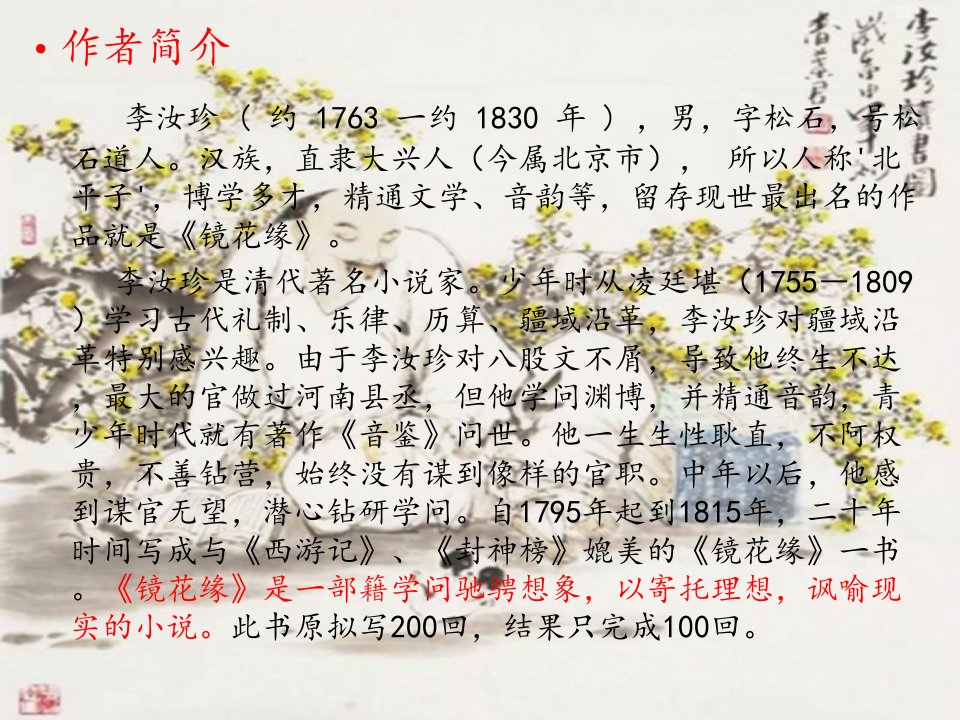 • 作者简介
李汝珍（ 约 1763 一约 1830 年 ），男，字松石，号松
石道人。汉族，直隶大兴人（今属北京市）， 所以人称'北
平子'，博学多才，精通文学、音韵等，留存现世最出名的作
品就是《镜花缘》。
李汝珍是清代著名小说家。少年时从凌廷堪（1755—1809
）学习古代礼制、乐律、历算、疆域沿革，李汝珍对疆域沿
革特别感兴趣。由于李汝珍对八股文不屑，导致他终生不达
，最大的官做过河南县丞，但他学问渊博，并精通音韵，青
少年时代就有著作《音鉴》问世。他一生生性耿直，不阿权
贵，不善钻营，始终没有谋到像样的官职。中年以后，他感
到谋官无望，潜心钻研学问。自1795年起到1815年，二十年
时间写成与《西游记》、《封神榜》媲美的《镜花缘》一书
。《镜花缘》是一部籍学问驰骋想象，以寄托理想，讽喻现
实的小说。此书原拟写200回，结果只完成100回。
李汝珍